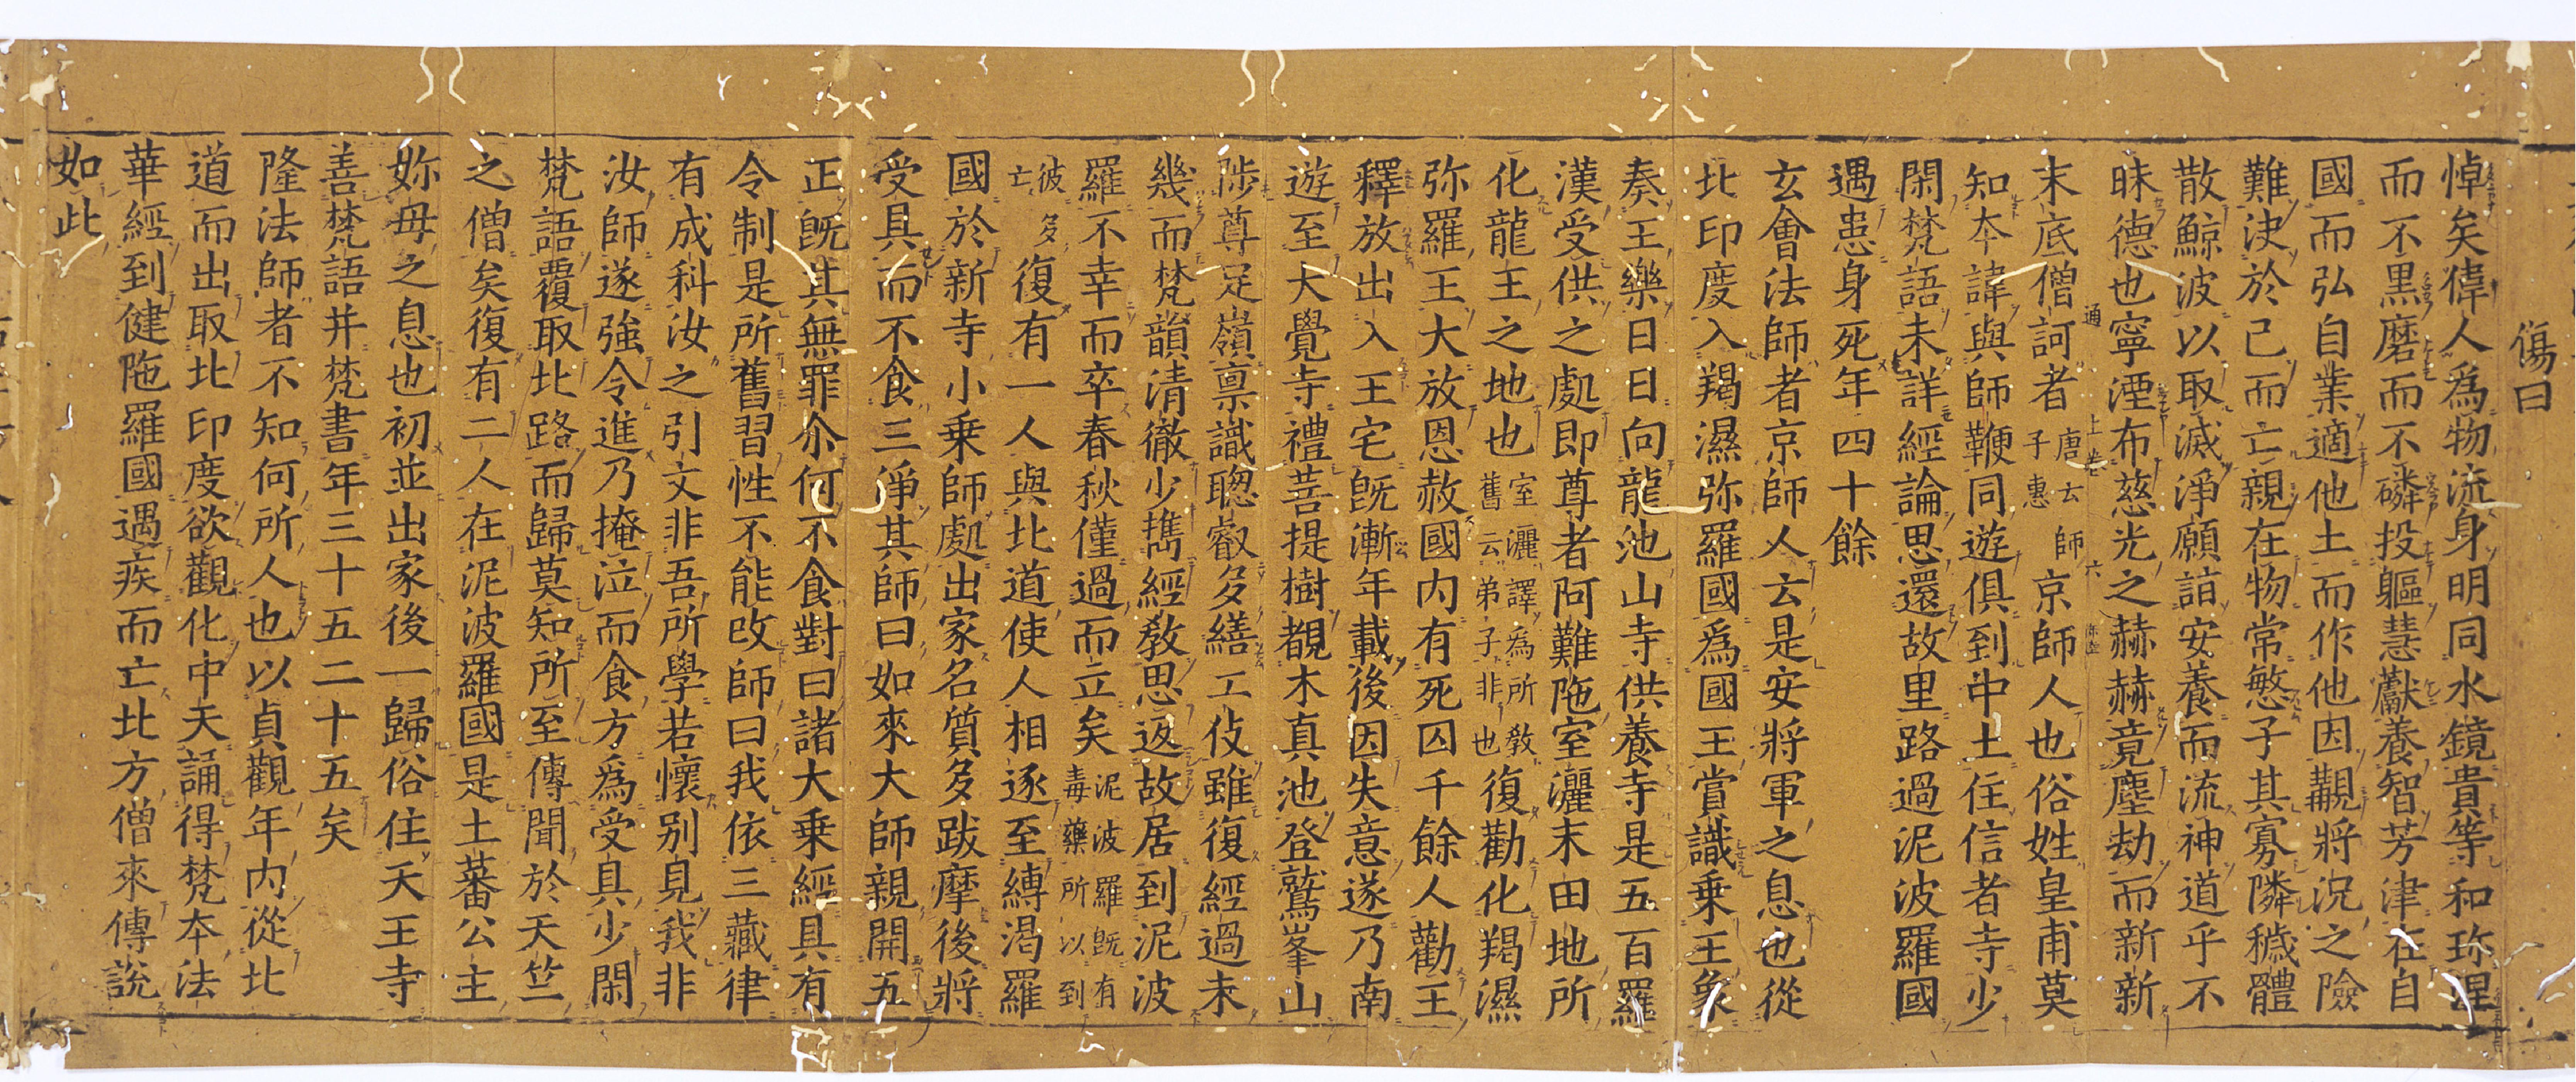 傷曰
悼矣偉人爲物流身明同水鏡貴等和珎涅
而不黒磨而不磷投軀慧巘養智芳津在自
國而弘自業適他土而作他因覯將況之險
難決於己而亡親在物常愍子其寡隣穢體
散鯨波以取滅淨願詣安養而流神道乎不
昧德也寧湮布慈光之赫赫竟塵劫而新新
末底僧訶者唐云師子惠京師人也俗姓皇甫莫
知夲諱與師鞭同遊俱到中土住信者寺少
閑梵語未詳經論思還故里路過泥波羅國
遇患身死年四十餘
玄會法師者京師人云是安將軍之息也從
北印度入羯濕弥羅國爲國王賞識乗王象
奏王樂日日向龍池山寺供養寺是五百羅
漢受供之處即尊者阿難陁室灑末田地所
化龍王之地也室灑譯為所教舊云弟子非也復勸化羯濕
弥羅王大放恩赦國内有死囚千餘人勸王
釋放出入王宅旣漸年載後因失意遂乃南
遊至大覺寺禮菩提樹覩木真池登鷲峯山
陟尊足嶺禀識聰叡多繕工伎雖復經過未
幾而梵韻清徹少携經教思返故居到泥波
羅不幸而卒春秋僅過而立矣泥波羅旣有毒藥所以到
彼多亡復有一人與北道使人相逐至縛渴羅
國於新寺小乗師處出家名質多跋摩後將
受具而不食三淨其師曰如來大師親開五
正旣其無罪尒何不食對曰諸大乗經具有
令制是所舊習性不能改師曰我依三藏律
有成科汝之引文非吾所學若懷别見我非
汝師遂強令進乃掩泣而食方爲受具少閑
梵語覆取北路而歸莫知所至傳聞於天竺
之僧矣復有二人在泥波羅國是土蕃公主
妳母之息也初並出家後一歸俗住天王寺
善梵語并梵書年三十五二十五矣
隆法師者不知何所人也以貞觀年内從北
道而出取北印度欲觀化中天誦得梵夲法
華經到健陁羅國遇疾而亡北方僧來傳說
如此